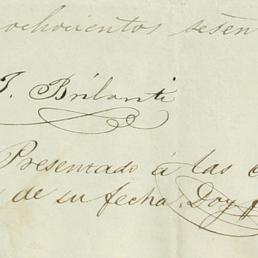 ochocientos sesen
J. Brilanti
Presentado á las
de su fecha. Doy